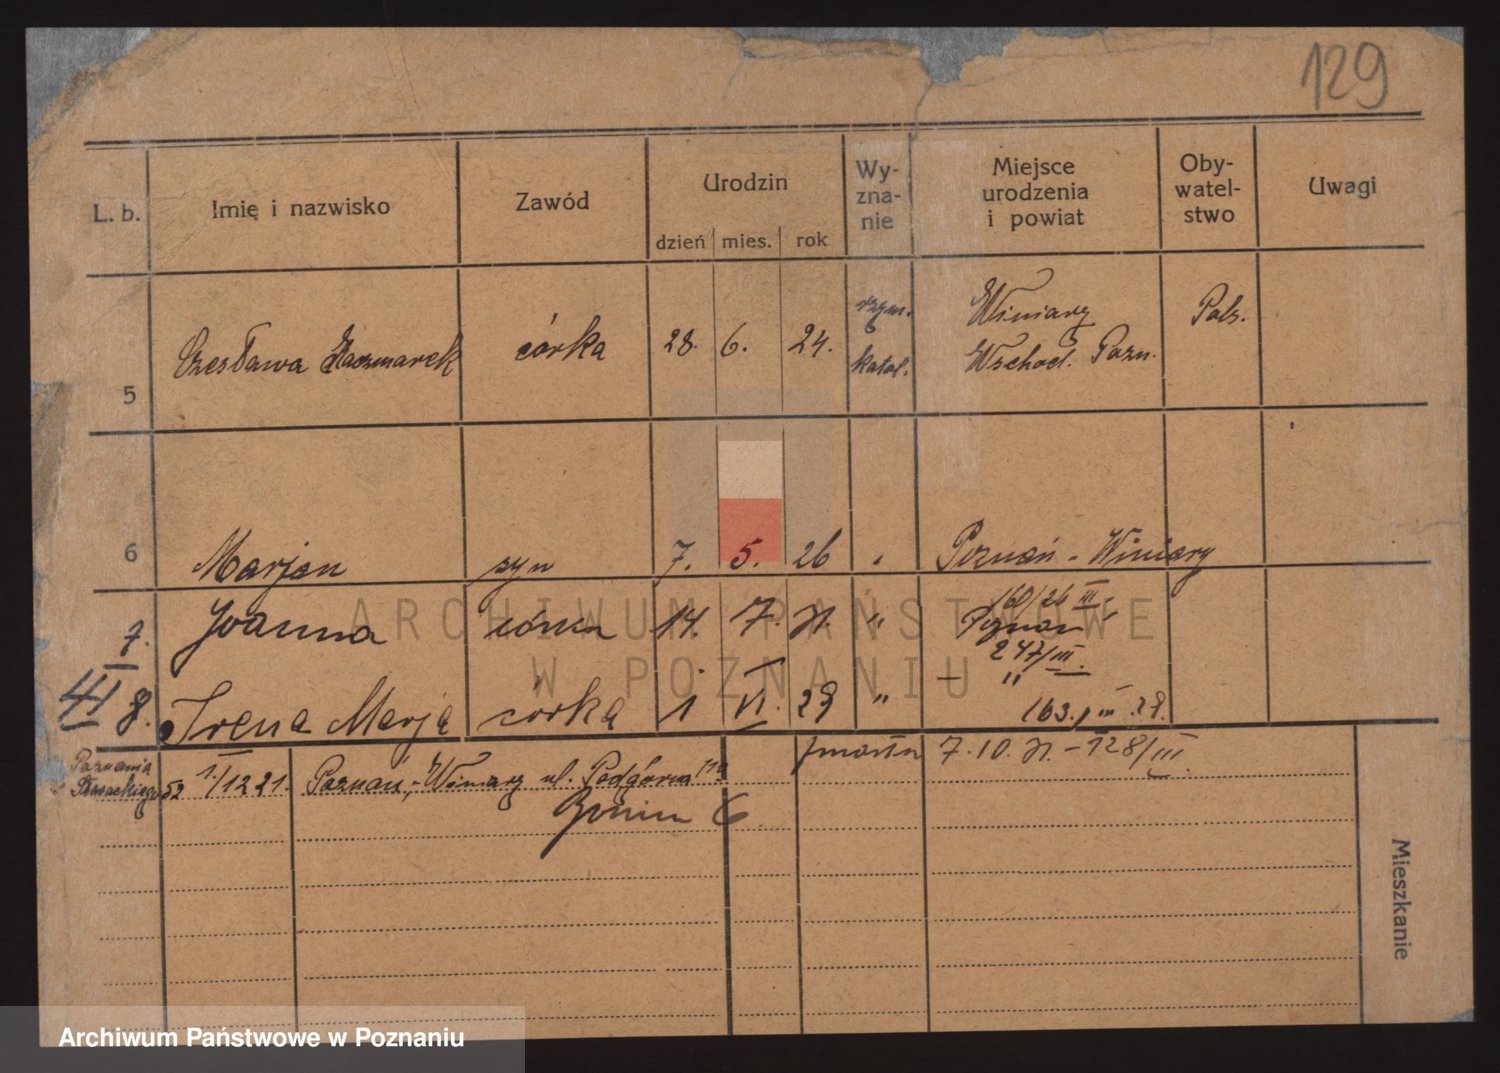 129
L. b. Imię i nazwisko Zawód Urodzin dzień mies. rok Wy-zna-nie Miejsce urodzenia i powiat Oby-watel-stwo Uwagi
5 Czesława Kaczmarek córka 28. 6. 24. rzym. katol. Winiary Wschod. Pozn. Pols.
6 Marjan syn 7. 5. 26 Poznań - Winiary
160/26 III
7. Joanna córka 14. 7. "
247/III.
41 8. Irena Marja córka 1 VI. 29 " — "
163. III 29.
Poznania 52 1./12 21. Poznań, - Winiary ul. Podgórna
zmarła 7. 10. - 128/III.
6
Mieszkanie
ARCHIWUM PAŃSTWOWE
W POZNANIU
Archiwum Państwowe w Poznaniu